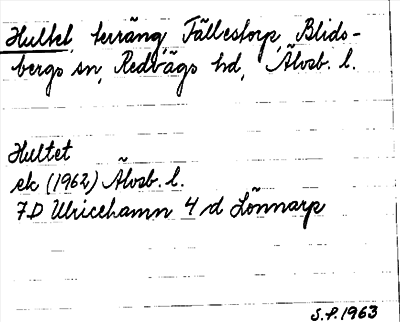 Hultet, terräng, Fällestorp, Blids-
bergs sn, Redvägs hd, Älvsb. l.
Hultet
ek (1962) Älvsb. l.
7D Ulricehamn 4 d Lönnarp
S.P. 1963